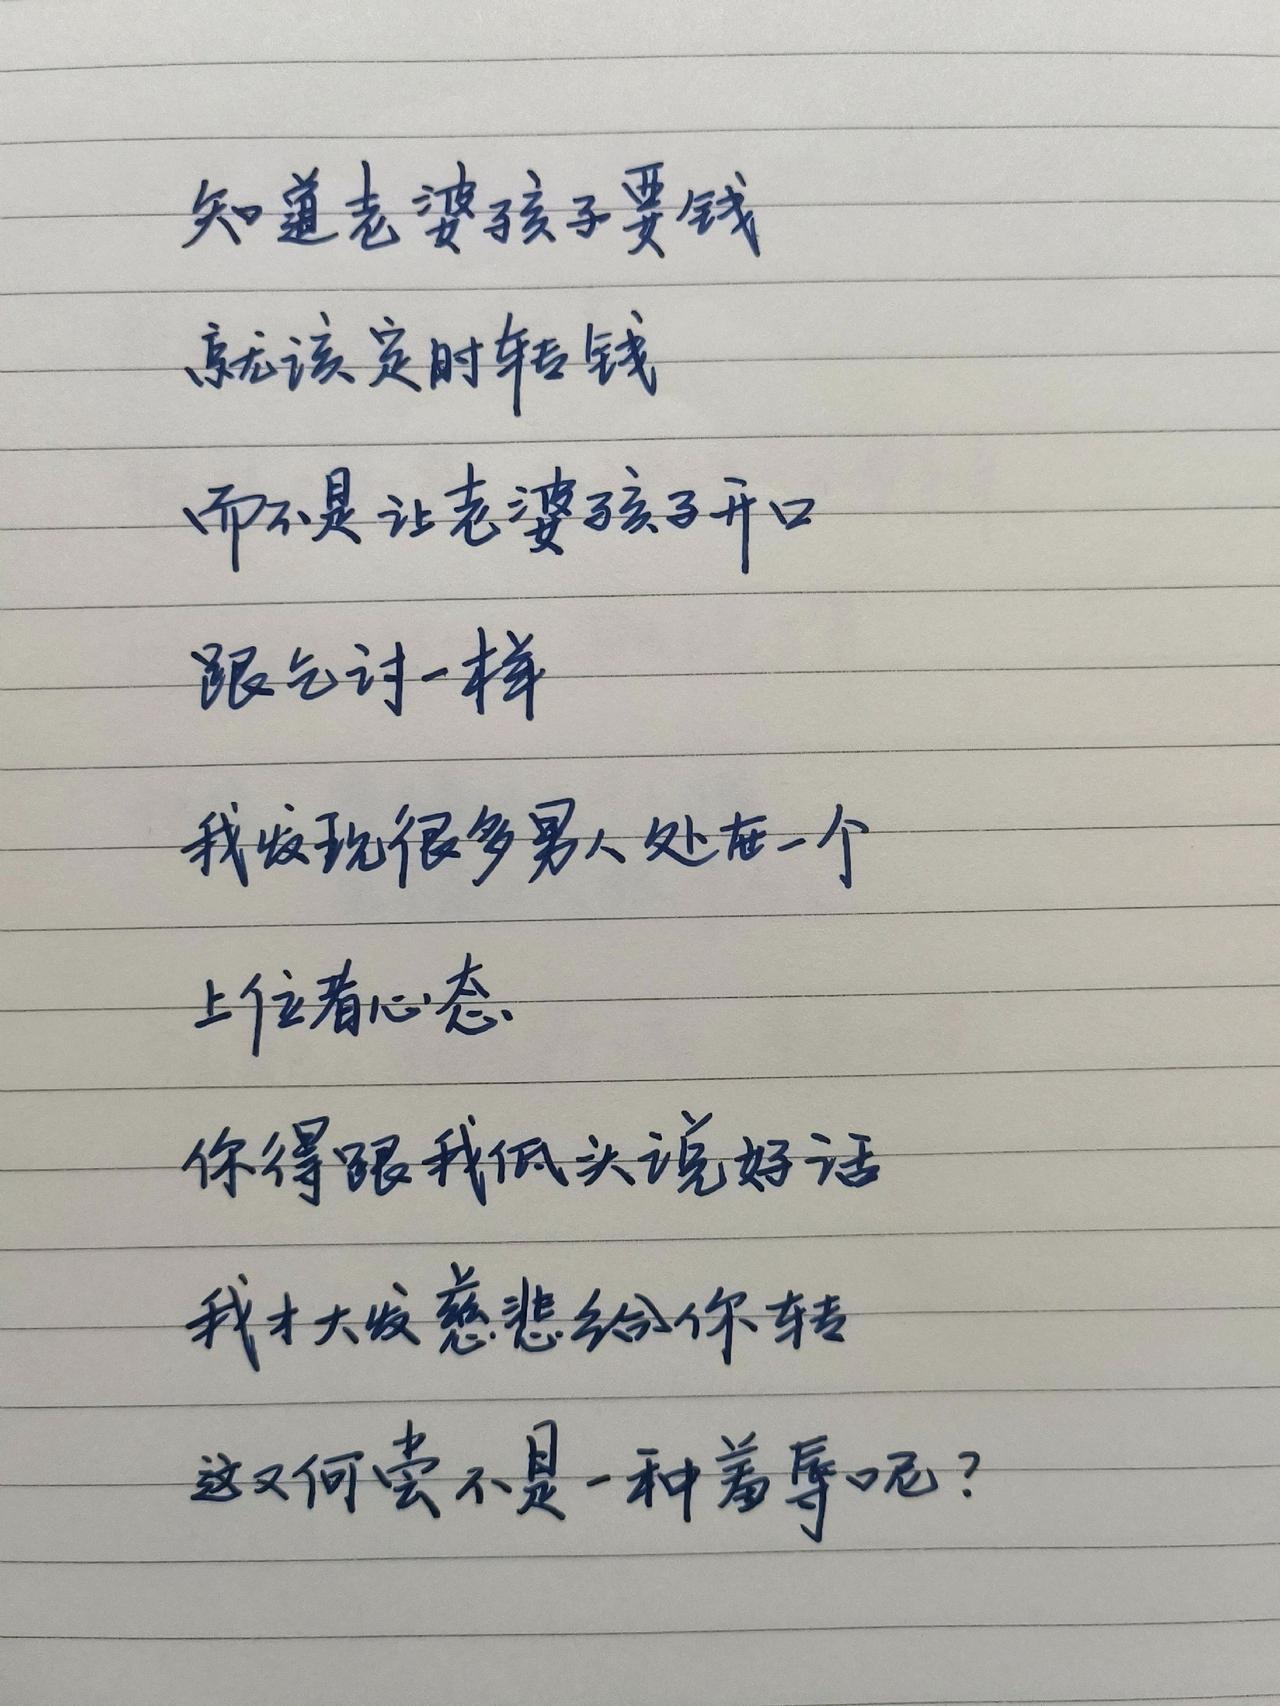 知道老婆孩子要钱
就该定时转钱
而不是让老婆孩子开口
跟乞讨一样
我发现很多男人处在一个
上位者心态
你得跟我低头说好话
我才大发慈悲给你转
这又何尝不是一种羞辱呢?